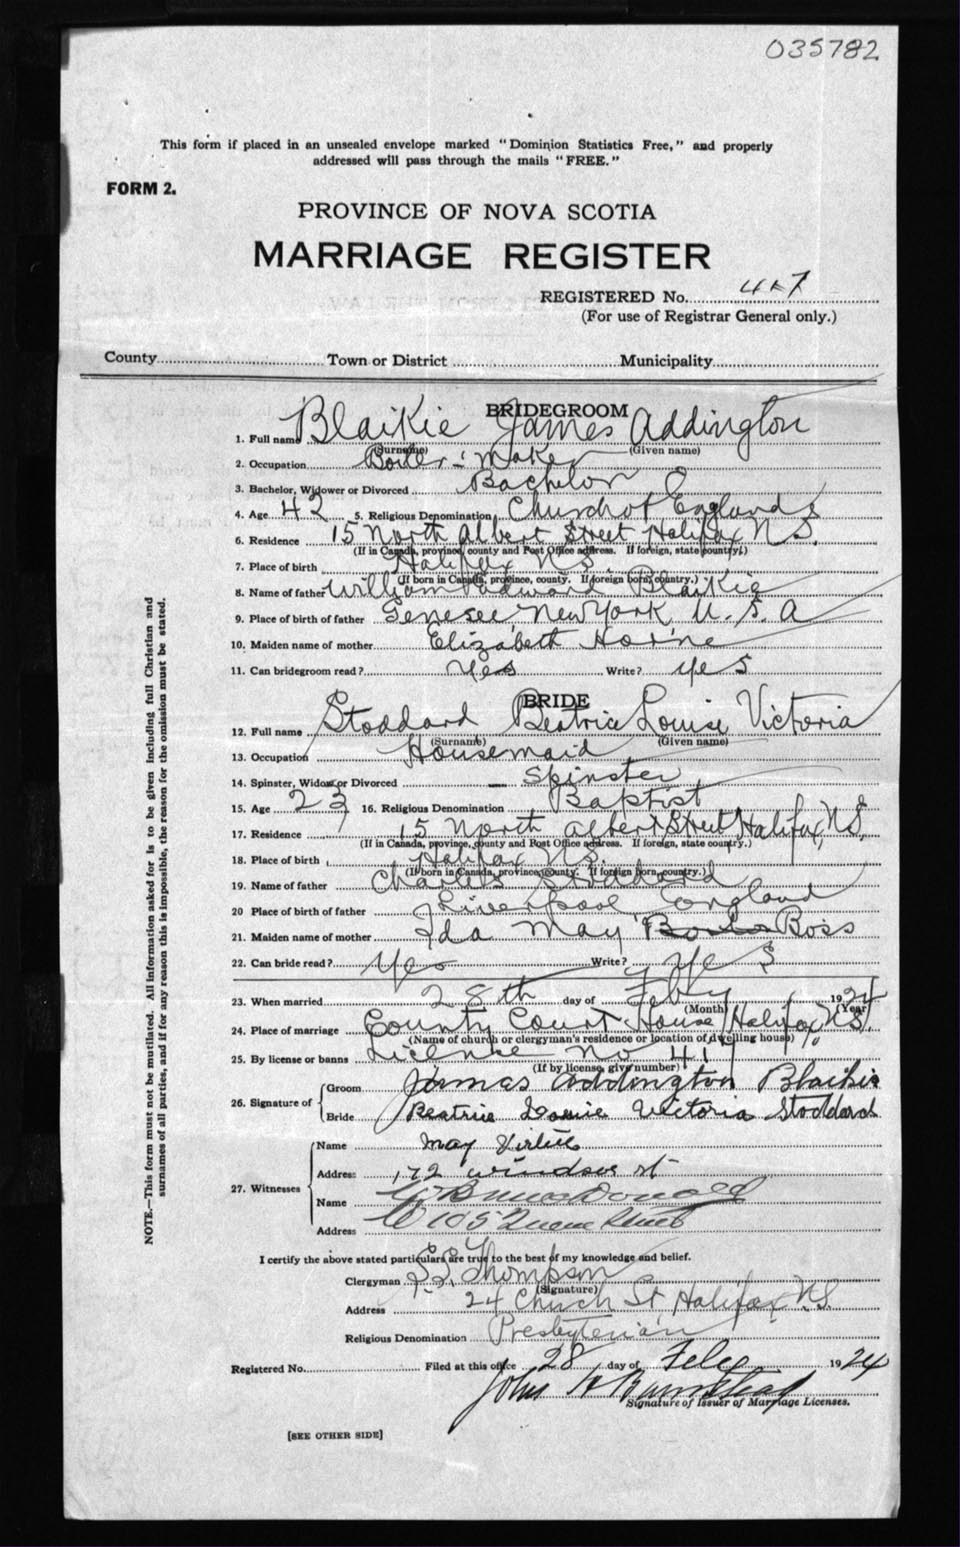 035782
This form if placed in an unsealed envelope marked "Dominion Statistics Free," and properly
addressed will pass through the mails "FREE."
FORM 2.
PROVINCE OF NOVA SCOTIA
MARRIAGE REGISTER
REGISTERED No.
(For use of Registrar General only.)
County Town or District Municipality
BRIDEGROOM
1. Full name Blaikie James Addington
(Surname) (Given name)
2. Occupation Boiler-Maker
3. Bachelor, Widower or Divorced Bachelor
4. Age 42 5. Religious Denomination Church of England
6. Residence 15 North Albert Street Halifax N.S.
(If in Canada, province, county and Post Office address. If foreign, state country.)
7. Place of birth Halifax N.S.
(If born in Canada, province, county. If foreign born, country.)
8. Name of father William Edward Blaikie
9. Place of birth of father Genesee New York U.S.A
10. Maiden name of mother Elizabeth Horne
11. Can bridegroom read? Yes Write? yes
BRIDE
12. Full name Stoddard Beatrice Louise Victoria
(Surname) (Given name)
13. Occupation Housemaid
14. Spinster, Widow or Divorced Spinster
15. Age 23 16. Religious Denomination Baptist
17. Residence 15 North Albert Street Halifax, N.S.
(If in Canada, province, county and Post Office address. If foreign, state country.)
18. Place of birth Halifax N.S.
(If born in Canada, province, county. If foreign born, country.)
19. Name of father Charles Stoddard
20 Place of birth of father Liverpool England
21. Maiden name of mother Ida May Ross
22. Can bride read? Yes Write? Yes
23. When married 28th day of Feby 1924
(Month) (Year)
24. Place of marriage County Court House Halifax, N.S.
(Name of church or clergyman's residence or location of dwelling house)
25. By license or banns License No 417
(If by license, give number)
26. Signature of Groom James Addington Blaikie
Bride Beatrice Louise Victoria Stoddard
27. Witnesses Name May
Address 172 Windsor St
Name MacDonald
Address 105 Queen Street
I certify the above stated particulars are true to the best of my knowledge and belief.
Clergyman Thompson
(Signature)
Address 24 Church St Halifax N.S.
Religious Denomination Presbyterian
Registered No. Filed at this office 28 day of Feb 1924
John
Signature of Issuer of Marriage Licenses.
[SEE OTHER SIDE]
NOTE.—This form must not be mutilated. All information asked for is to be given including full Christian and
surnames of all parties, and if for any reason this is impossible, the reason for the omission must be stated.